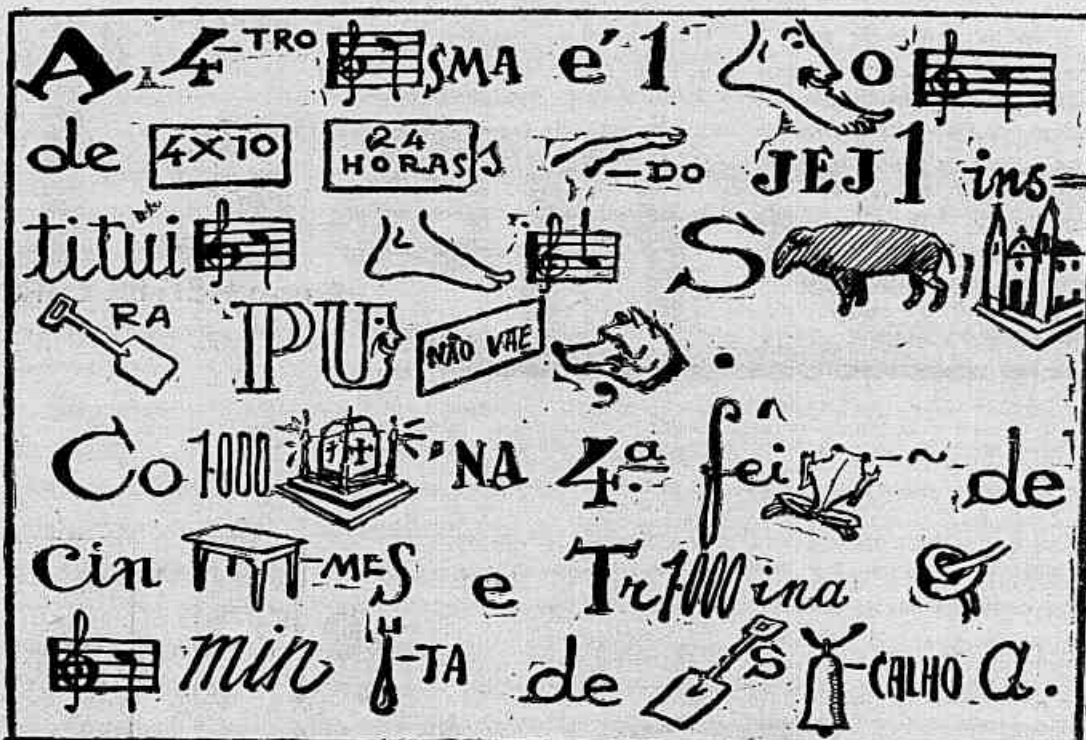 A 4-TRO SMA é 1 O
de 4X10 24 HORAS S -DO JEJ1 ins=
titui S ,
RA PU NÃO VAE , .
Co 1000 NA 4.ª fei ^ -~ de
Cin -MES e Tr1000ina
min -TA de S -CALHO A.